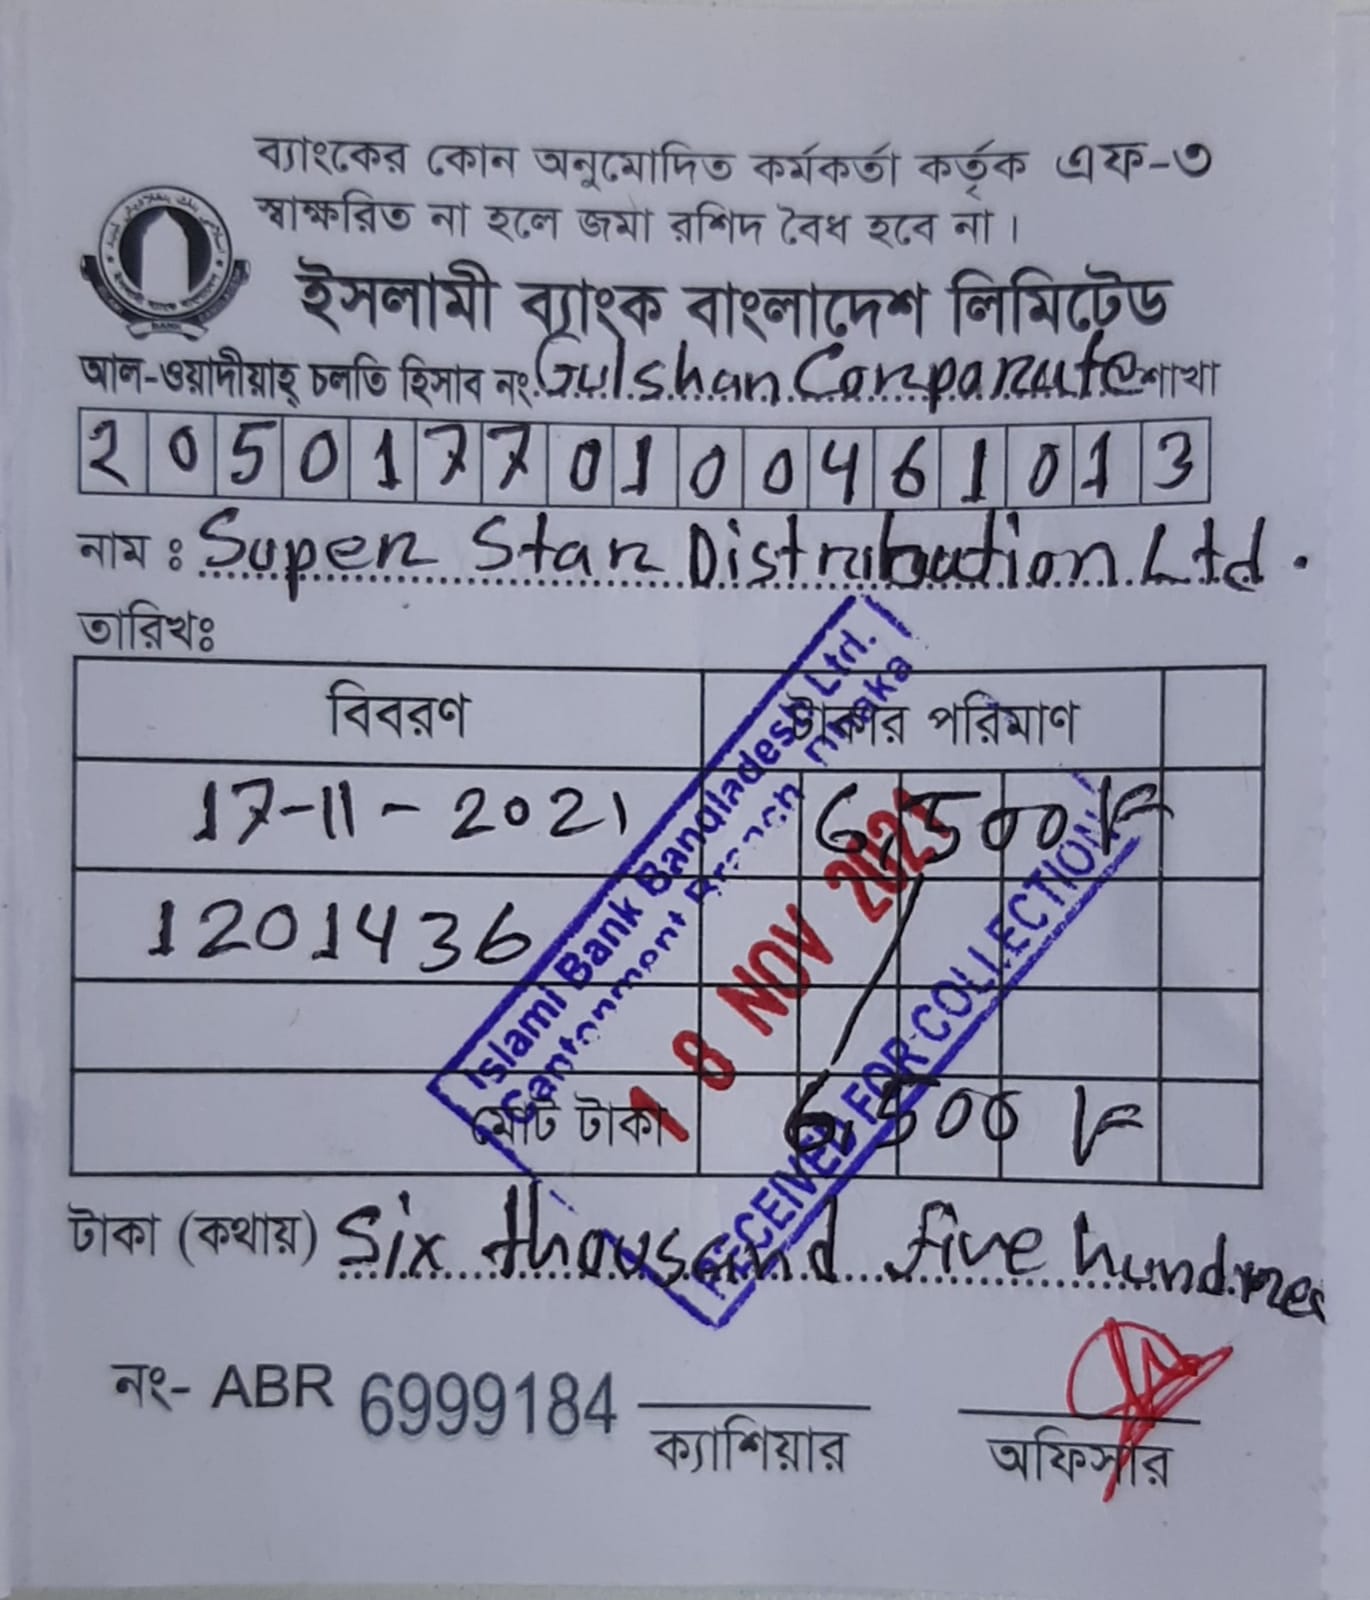 ব্যাংকের কোন অনুমোদিত কর্মকর্তা কর্তৃক এফ-৩
স্বাক্ষরিত না হলে জমা রশিদ বৈধ হবে না।
ইসলামী ব্যাংক বাংলাদেশ লিমিটেড
আল-ওয়াদীয়াহ্ চলতি হিসাব নং Gulshan Corporate শাখা
2 0 5 0 1 7 7 0 1 0 0 4 6 1 0 1 3
নাম : Super Star Distribution Ltd.
তারিখঃ
বিবরণ টাকার পরিমাণ
17-11-2021 6,500/=
1201436
মোট টাকা 6,500/=
Islami Bank Bangladesh Ltd.
Cantonment Branch Dhaka
18 NOV 2021
RECEIVED FOR COLLECTION
টাকা (কথায়) Six thousand five hundred
নং- ABR 6999184
ক্যাশিয়ার অফিসার